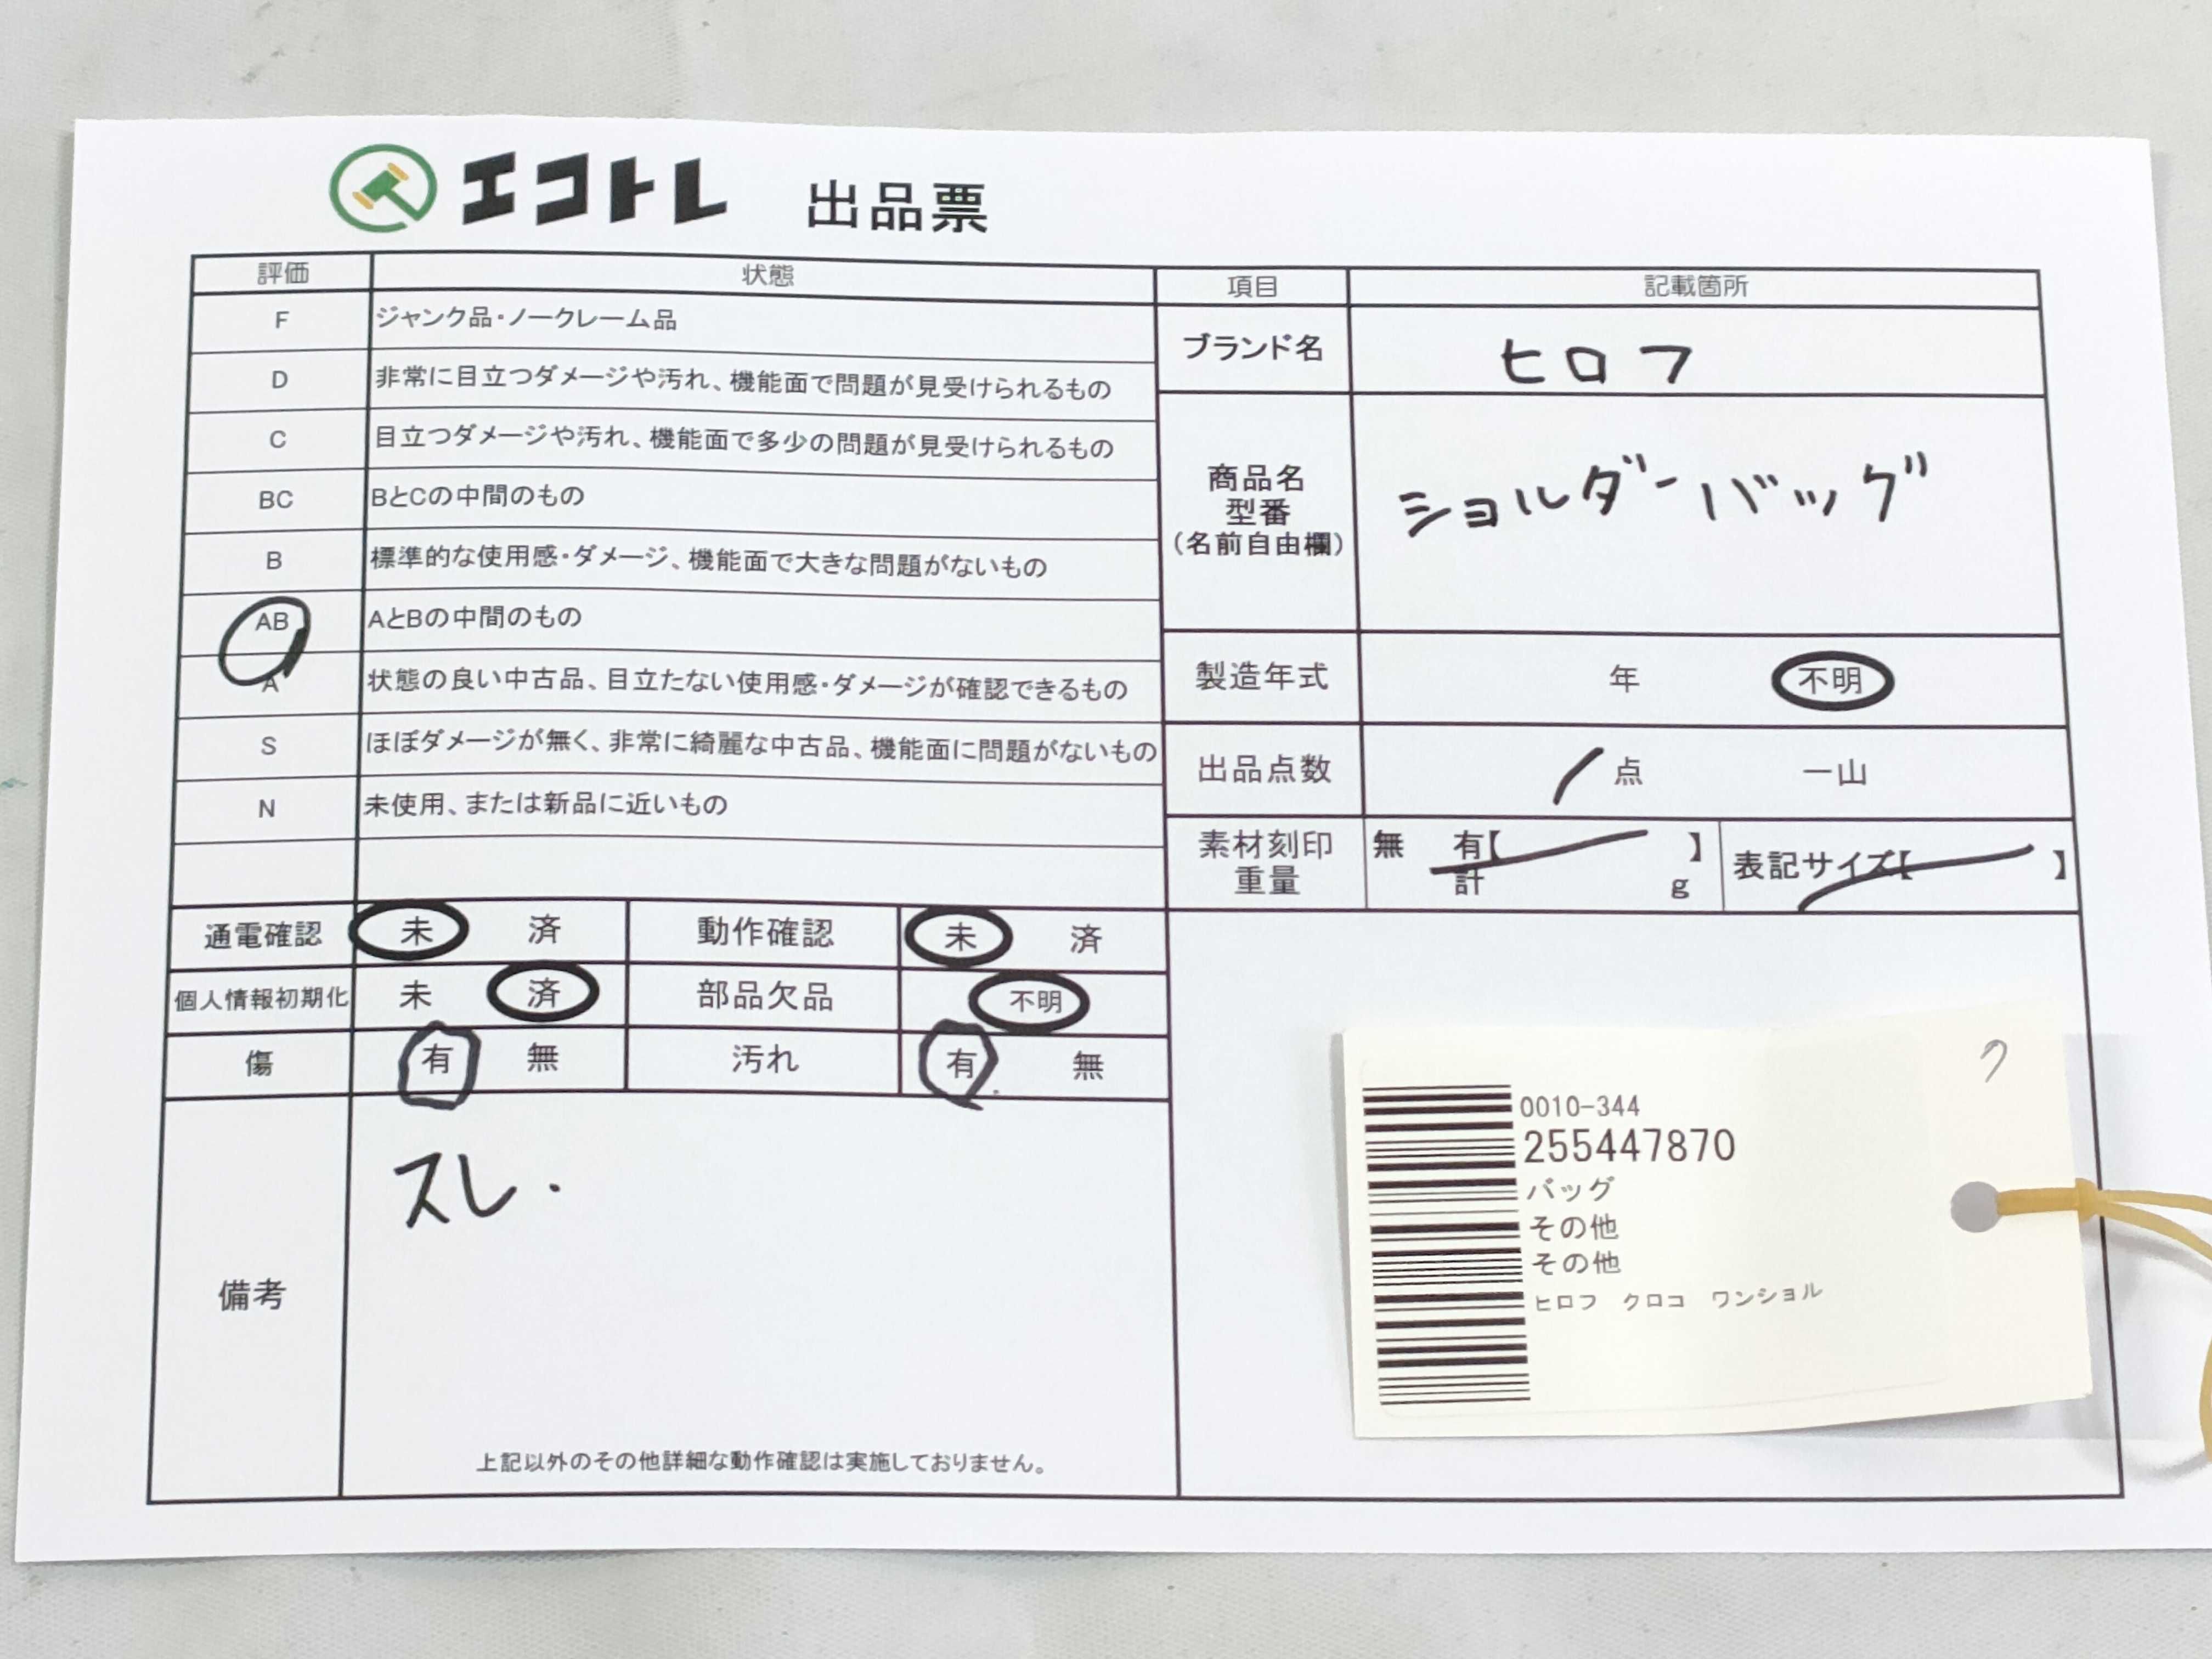 エコトレ 出品票
評価 状態
F ジャンク品・ノークレーム品
D 非常に目立つダメージや汚れ、機能面で問題が見受けられるもの
C 目立つダメージや汚れ、機能面で多少の問題が見受けられるもの
BC BとCの中間のもの
B 標準的な使用感・ダメージ、機能面で大きな問題がないもの
AB AとBの中間のもの
A 状態の良い中古品、目立たない使用感・ダメージが確認できるもの
S ほぼダメージが無く、非常に綺麗な中古品、機能面に問題がないもの
N 未使用、または新品に近いもの
通電確認 未 済 動作確認 未 済
個人情報初期化 未 済 部品欠品 不明
傷 有 無 汚れ 有 無
備考
スレ.
上記以外のその他詳細な動作確認は実施しておりません。
項目 記載箇所
ブランド名 ヒロフ
商品名
型番
(名前自由欄)
ショルダーバッグ
製造年式 年 不明
出品点数 1 点 一山
素材刻印
重量
無 有【 】
計 g
表記サイズ【 】
0010-344
255447870
バッグ
その他
その他
ヒロフ クロコ ワンショル